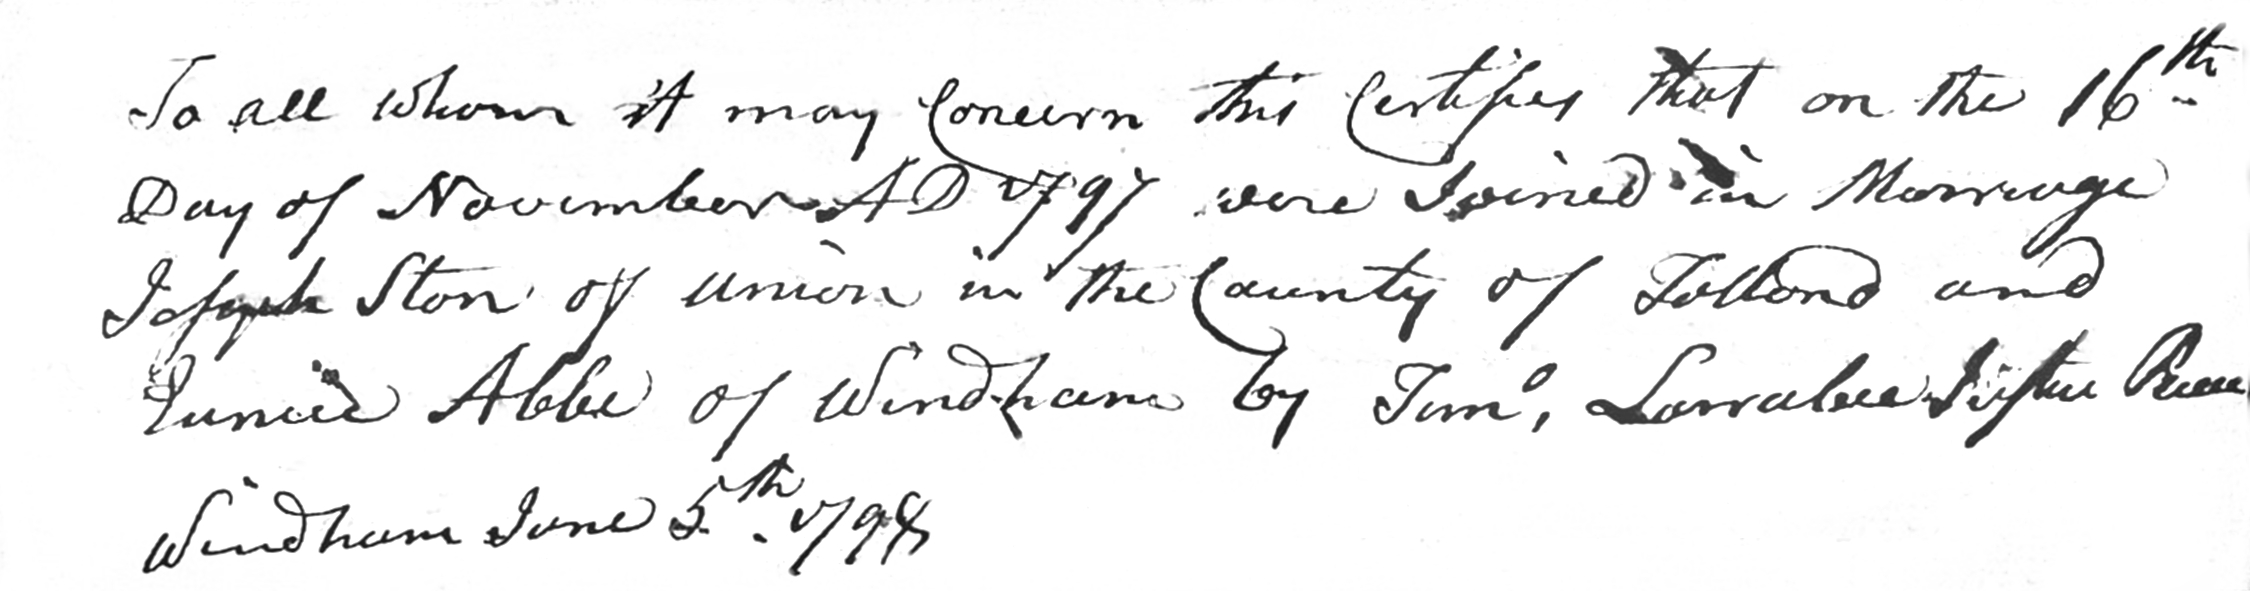 To all whom it may Concern this Certifies that on the 16th
Day of November AD 1797 were Joined in Marriage
Joseph Ston of Union in the County of Tolland and
Eunice Abbe of Windham by Timo, Larrabee Justice Peace
Windham June 5th. 1798